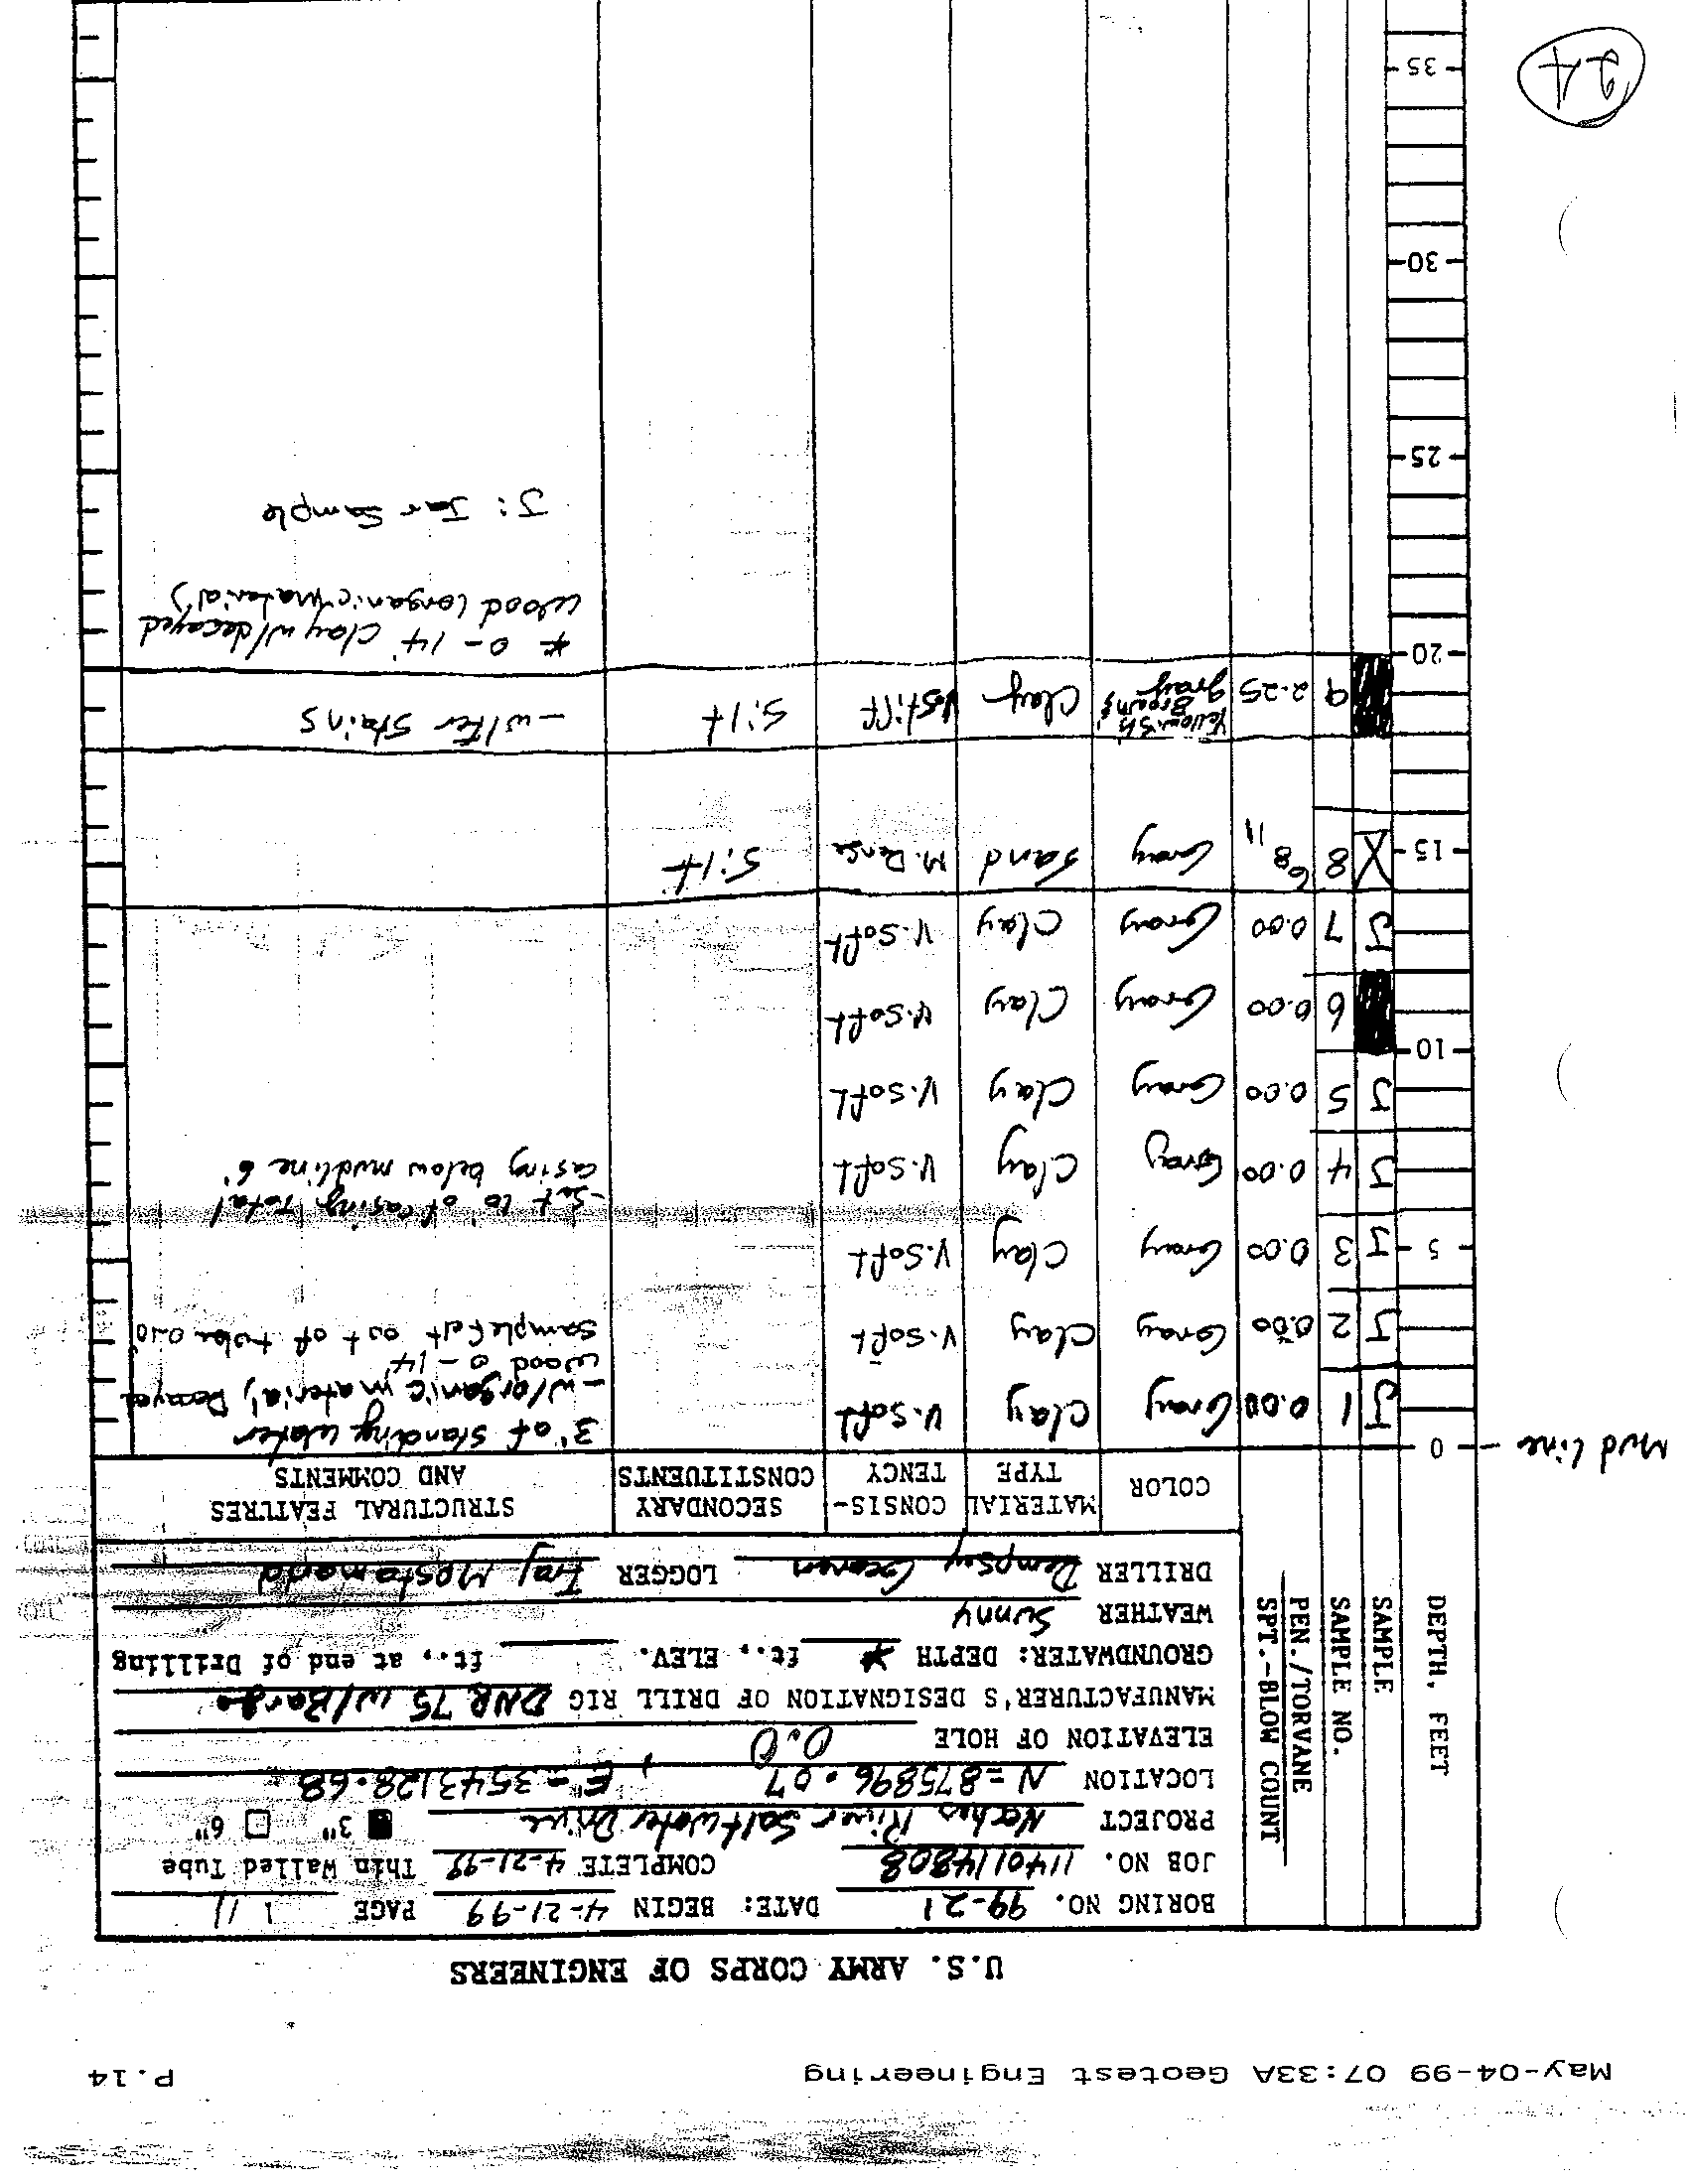 May-04-99 07:33A Geotest Engineering P.14
U.S. ARMY CORPS OF ENGINEERS
BORING NO. 99-21 DATE: BEGIN 4-21-99 PAGE 1/1
JOB NO. 1140114808 COMPLETE 4-21-99 Thin Walled Tube
PROJECT Neches River Saltwater Drive 3" 6"
LOCATION N=875896.07, E=3543128.68
ELEVATION OF HOLE 0.0
MANUFACTURER'S DESIGNATION OF DRILL RIG DNR 75 w/Barge
GROUNDWATER: DEPTH * ft., ELEV. ft., at end of Drilling
WEATHER Sunny
DRILLER Dempsey LOGGER Iraj Mostamand
DEPTH, FEET
SAMPLE
SAMPLE NO.
PEN./TORVANE
SPT.-BLOW COUNT
COLOR
MATERIAL TYPE
CONSIS-TENCY
SECONDARY CONSTITUENTS
STRUCTURAL FEATURES AND COMMENTS
Mud line - 0
J 1 0.00 Gray Clay V.Soft 3' of standing water
- w/organic material, Decayed
wood 0-14'
J 2 0.00 Gray Clay V.Soft sample fell out of tube 0-10'
5 J 3 0.00 Gray Clay V.Soft
- Set 10' of casing Total
casing below mudline 6'
J 4 0.00 Gray Clay V.Soft
J 5 0.00 Gray Clay V.Soft
10
6 0.00 Gray Clay V.Soft
J 7 0.00 Gray Clay V.Soft
15 X 8 6 8 11 Gray Sand M.Dense Silt
9 2.25 Yellowish Brown & gray Clay V.Stiff Silt - w/fer stains
20
* 0-14' Clay w/decayed
wood (organic material)
J: Jar Sample
25
30
35
24